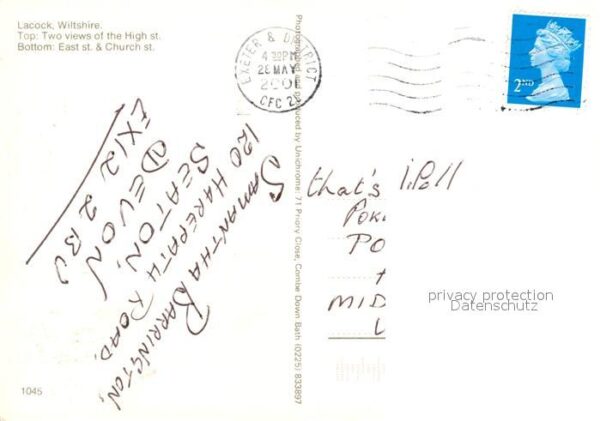 Lacock, Wiltshire.
Top: Two views of the High st.
Bottom: East st. & Church st.
EXETER & DISTRICT
4.30PM
28 MAY
CFC 2
2ND
Photographed and produced by Unichrome: 71 Priory Close, Combe Down Bath (0225) 833897
SAMANTHA BARRINGTON,
120 HAREPATH ROAD,
SEATON,
DEVON
EX12 2
that's
PO
MID
L
privacy protection
Datenschutz
1045